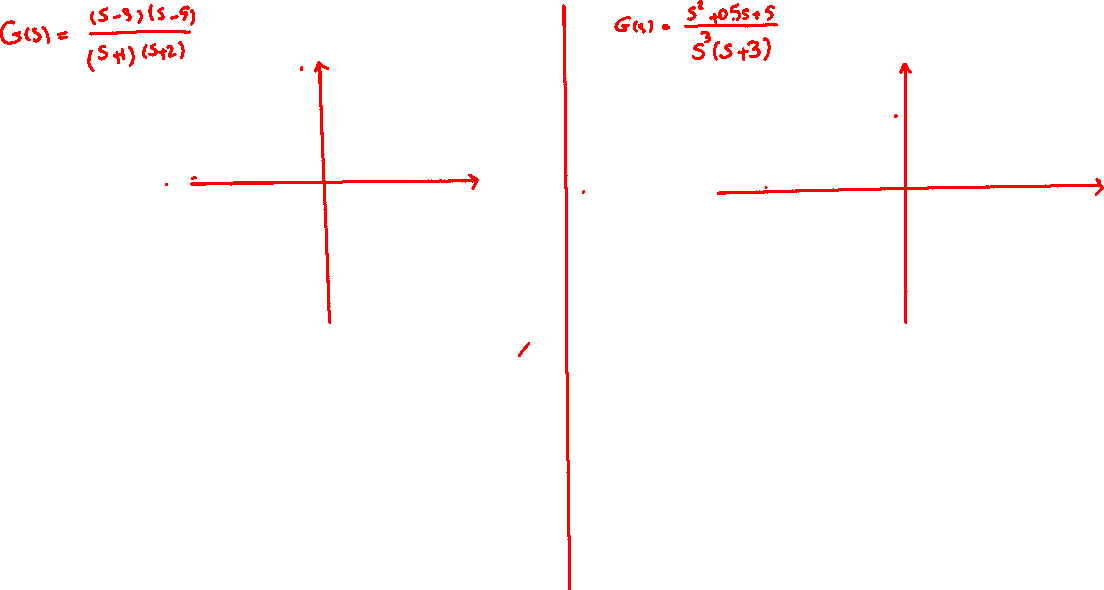 G(s) = (s-3)(s-5) / (s+1)(s+2)
G(s) = s²+0.5s+5 / s³(s+3)